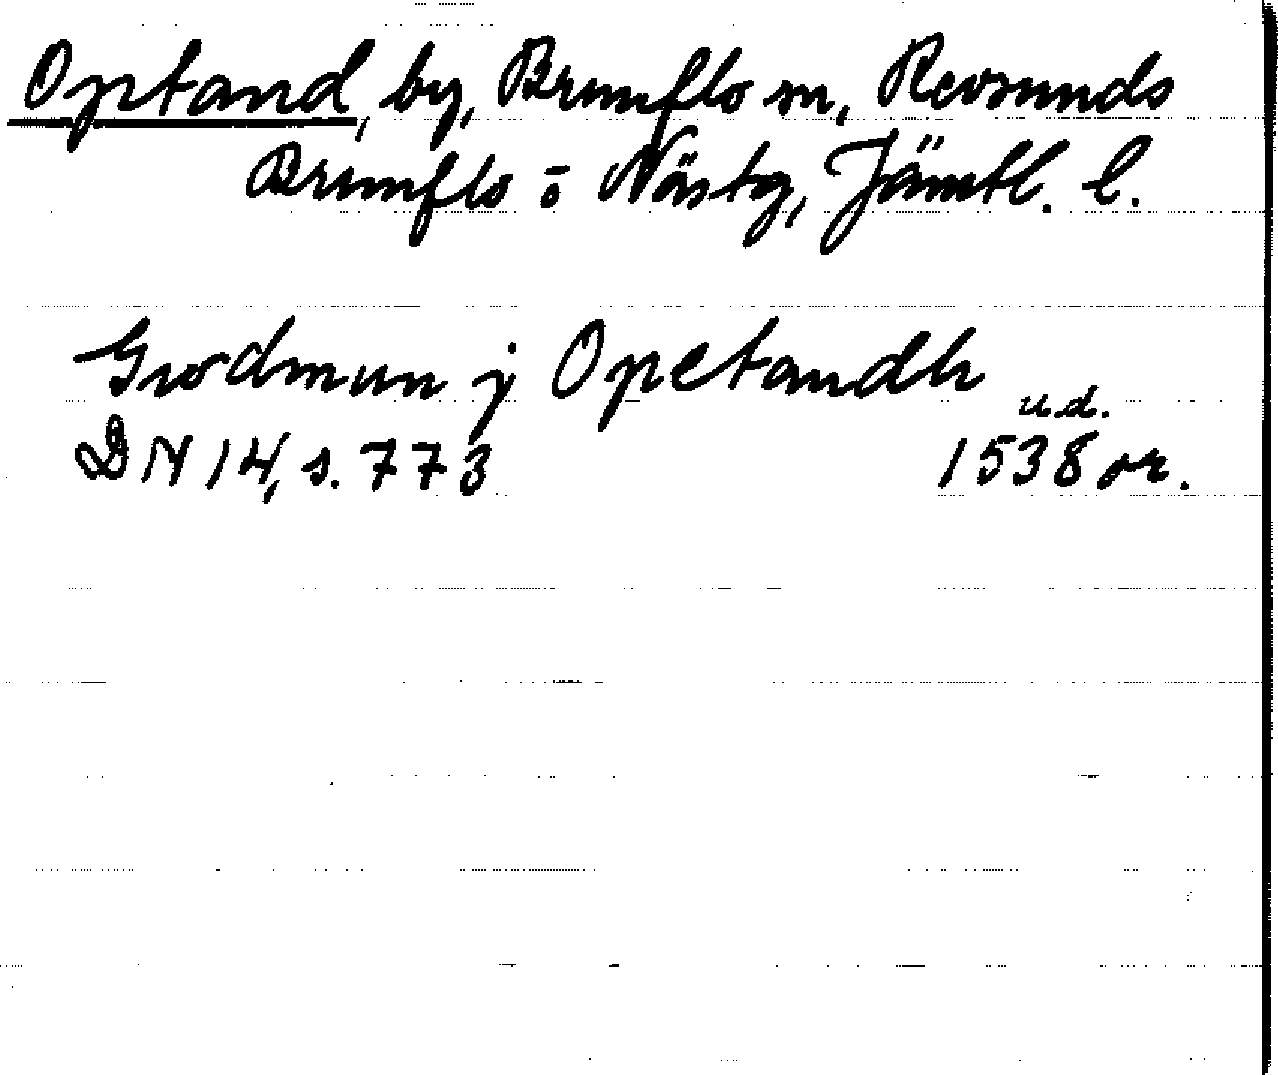 Optand, by, Brunflo sn, Revsunds
Brunflo o Näs tg, Jämtl. l.
Gudmun j Opetandh
u.d.
DN 14, s. 773 1538 or.